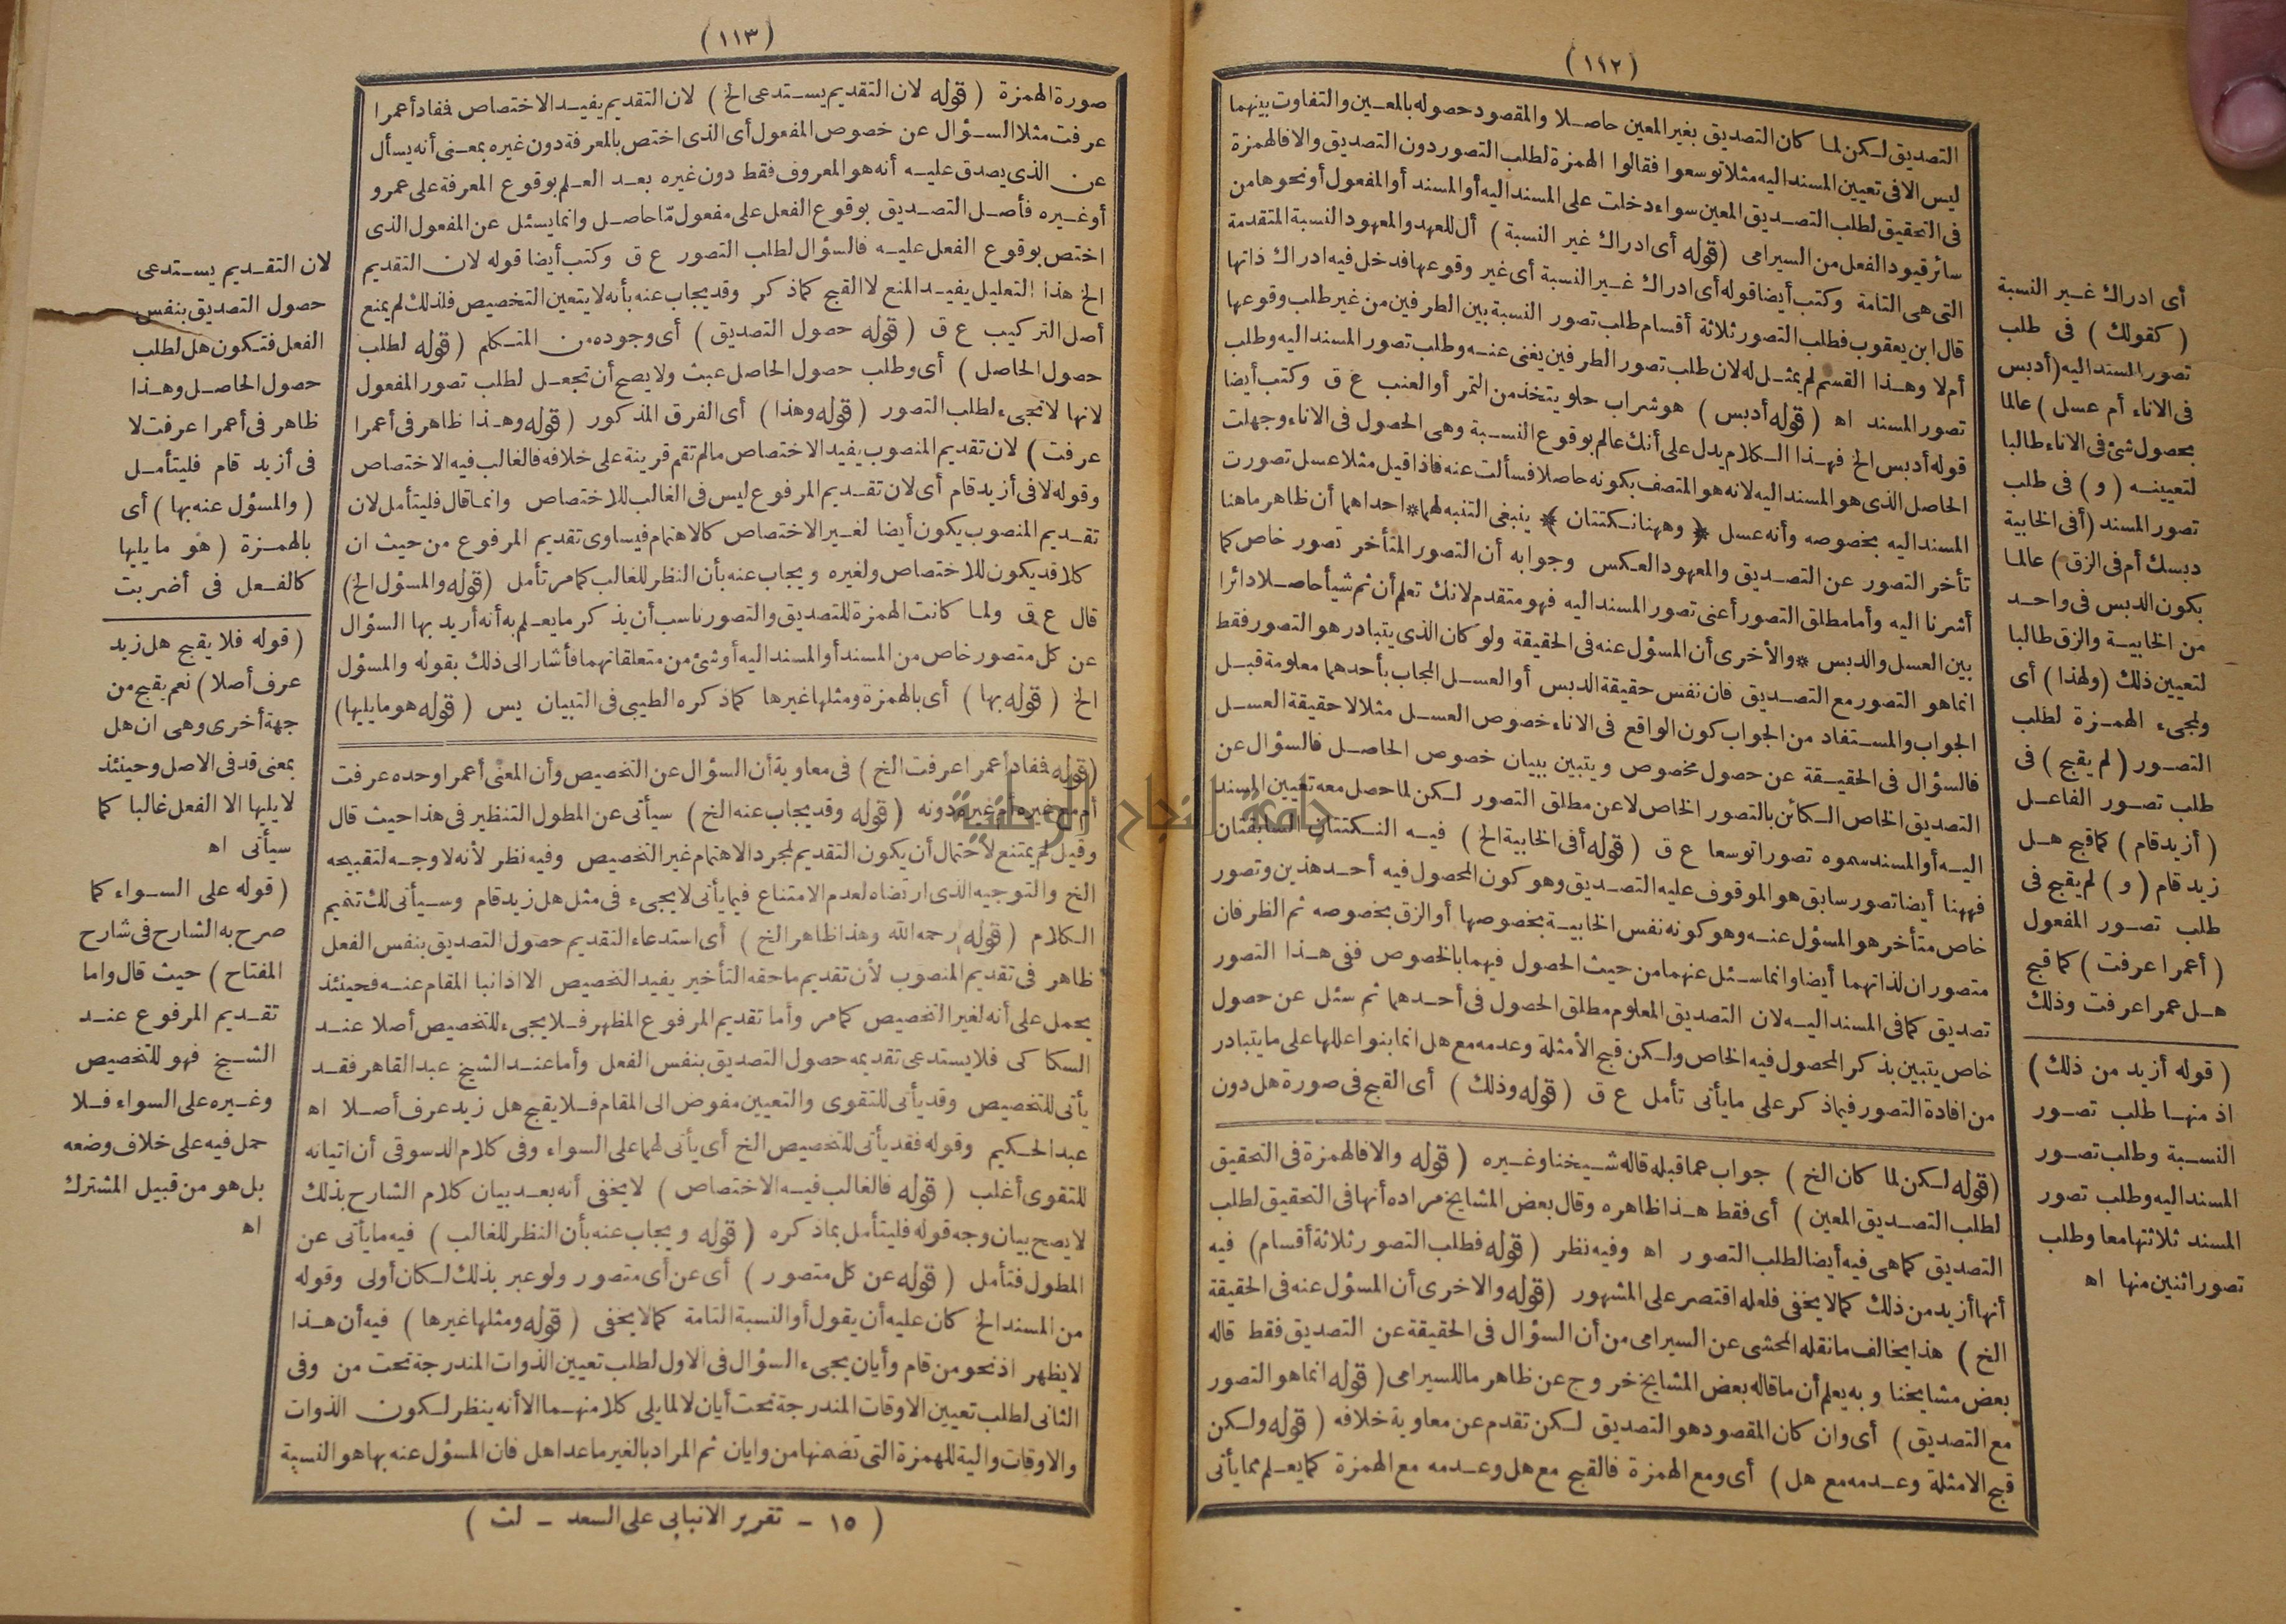 (١١٢)
التصديق لكن لما كان التصديق بغير المعين حاصلا والمقصود حصوله بالمعين والتفاوت بينهما
ليس الا فى تعيين المسند اليه مثلا توسعوا فقالوا الهمزة لطلب التصور دون التصديق والا فالهمزة
فى التحقيق لطلب التصديق المعين سواء دخلت على المسند اليه أو المسند أو المفعول أو نحوها من
سائر قيود الفعل من السيرامى (قوله أى ادراك غير النسبة) أل للعهد والمعهود النسبة المتقدمة
التى هى التامة وكتب أيضا قوله أى ادراك غير النسبة أى غير وقوعها فدخل فيه ادراك ذاتها
قال ابن يعقوب فطلب التصور ثلاثة أقسام طلب تصور النسبة بين الطرفين من غير طلب وقوعها
أم لا وهذا القسم لم يمثل له لان طلب تصور الطرفين يغنى عنه وطلب تصور المسند اليه وطلب
تصور المسند اه (قوله أدبس) هو شراب حلو يتخذ من التمر أو العنب ع ق وكتب أيضا
قوله أدبس الخ فهذا الكلام يدل على أنك عالم بوقوع النسبة وهى الحصول فى الاناء وجهلت
الحاصل الذى هو المسند اليه لانه هو المتصف بكونه حاصلا فسألت عنه فاذا قيل مثلا عسل تصورت
المسند اليه بخصوصه وأنه عسل ﴿ وههنا نكتتان ﴾ ينبغى التنبه لهما * احداهما أن ظاهر ما هنا
تأخر التصور عن التصديق والمعهود العكس وجوابه أن التصور المتأخر تصور خاص كما
أشرنا اليه وأما مطلق التصور أعنى تصور المسند اليه فهو متقدم لانك تعلم أن ثم شيأ حاصلا دائرا
بين العسل والدبس * والأخرى أن المسؤل عنه فى الحقيقة ولو كان الذى يتبادر هو التصور فقط
انما هو التصور مع التصديق فان نفس حقيقة الدبس أو العسل المجاب بأحدهما معلومة قبل
الجواب والمستفاد من الجواب كون الواقع فى الاناء خصوص العسل مثلا لا حقيقة العسل
فالسؤال فى الحقيقة عن حصول مخصوص ويتبين ببيان خصوص الحاصل فالسؤال عن
التصديق الخاص الكائن بالتصور الخاص لا عن مطلق التصور لكن لما حصل معه تعيين المسند
اليه أو المسند سموه تصورا توسعا ع ق (قوله أفى الخابية الخ) فيه النكتتان السابقتان
فههنا أيضا تصور سابق هو الموقوف عليه التصديق وهو كون المحصول فيه أحد هذين وتصور
خاص متأخر هو المسؤل عنه وهو كونه نفس الخابية بخصوصها أو الزق بخصوصه ثم الظرفان
متصوران لذاتهما أيضا وانما سئل عنهما من حيث الحصول فيهما بالخصوص ففى هذا التصور
تصديق كما فى المسند اليه لان التصديق المعلوم مطلق الحصول فى أحدهما ثم سئل عن حصول
خاص يتبين بذكر المحصول فيه الخاص ولكن قبح الأمثلة وعدمه مع هل انما بنوا عللها على ما يتبادر
من افادة التصور فيما ذكر على ما يأتى تأمل ع ق (قوله وذلك) أى القبح فى صورة هل دون
(قوله لكن لما كان الخ) جواب عما قبله قاله شيخنا وغيره (قوله والا فالهمزة فى التحقيق
لطلب التصديق المعين) أى فقط هذا ظاهره وقال بعض المشايخ مراده أنها فى التحقيق لطلب
التصديق كما هى فيه أيضا لطلب التصور اه وفيه نظر (قوله فطلب التصور ثلاثة أقسام) فيه
أنها أزيد من ذلك كما لا يخفى فلعله اقتصر على المشهور (قوله والاخرى أن المسؤل عنه فى الحقيقة
الخ) هذا يخالف ما نقله المحشى عن السيرامى من أن السؤال فى الحقيقة عن التصديق فقط قاله
بعض مشايخنا وبه يعلم أن ما قاله بعض المشايخ خروج عن ظاهر ما للسيرامى (قوله انما هو التصور
مع التصديق) أى وان كان المقصود هو التصديق لكن تقدم عن معاوية خلافه (قوله ولكن
قبح الامثلة وعدمه مع هل) أى ومع الهمزة فالقبح مع هل وعدمه مع الهمزة كما يعلم مما يأتى
أى ادراك غير النسبة
(كقولك) فى طلب
تصور المسند اليه (أدبس
فى الاناء أم عسل) عالما
بحصول شئ فى الاناء طالبا
لتعيينه (و) فى طلب
تصور المسند (أفى الخابية
دبسك أم فى الزق) عالما
بكون الدبس فى واحد
من الخابية والزق طالبا
لتعيين ذلك (ولهذا) أى
ولمجىء الهمزة لطلب
التصور (لم يقبح) فى
طلب تصور الفاعل
(أزيد قام) كما قبح هل
زيد قام (و) لم يقبح فى
طلب تصور المفعول
(أعمرا عرفت) كما قبح
هل عمرا عرفت وذلك
(قوله أزيد من ذلك)
اذ منها طلب تصور
النسبة وطلب تصور
المسند اليه وطلب تصور
المسند ثلاثتها معا وطلب
تصور اثنين منها اه
(١١٣)
صورة الهمزة (قوله لان التقديم يستدعى الخ) لان التقديم يفيد الاختصاص ففاد أعمرا
عرفت مثلا السؤال عن خصوص المفعول أى الذى اختص بالمعرفة دون غيره بمعنى أنه يسأل
عن الذى يصدق عليه أنه هو المعروف فقط دون غيره بعد العلم بوقوع المعرفة على عمرو
أو غيره فأصل التصديق بوقوع الفعل على مفعول مّا حاصل وانما يسئل عن المفعول الذى
اختص بوقوع الفعل عليه فالسؤال لطلب التصور ع ق وكتب أيضا قوله لان التقديم
الخ هذا التعليل يفيد المنع لا القبح كما ذكر وقد يجاب عنه بأنه لا يتعين التخصيص فلذلك لم يمنع
أصل التركيب ع ق (قوله حصول التصديق) أى وجوده من المتكلم (قوله لطلب
حصول الحاصل) أى وطلب حصول الحاصل عبث ولا يصح أن تجعل لطلب تصور المفعول
لانها لا تجىء لطلب التصور (قوله وهذا) أى الفرق المذكور (قوله وهذا ظاهر فى أعمرا
عرفت) لان تقديم المنصوب يفيد الاختصاص ما لم تقم قرينة على خلافه فالغالب فيه الاختصاص
وقوله لا فى أزيد قام أى لان تقديم المرفوع ليس فى الغالب للاختصاص وانما قال فليتأمل لان
تقديم المنصوب يكون أيضا لغير الاختصاص كالاهتمام فيساوى تقديم المرفوع من حيث ان
كلا قد يكون للاختصاص ولغيره ويجاب عنه بأن النظر للغالب كما مر تأمل (قوله والمسؤل الخ)
قال ع ق ولما كانت الهمزة للتصديق والتصور ناسب أن يذكر ما يعلم به أنه أريد بها السؤال
عن كل متصور خاص من المسند أو المسند اليه أو شئ من متعلقاتهما فأشار الى ذلك بقوله والمسؤل
الخ (قوله بها) أى بالهمزة ومثلها غيرها كما ذكره الطيبى فى التبيان يس (قوله هو ما يليها)
(قوله ففاد أعمرا عرفت الخ) فى معاوية أن السؤال عن التخصيص وأن المعنى أعمرا وحده عرفت
أم مع غيره أم غيره دونه (قوله وقد يجاب عنه الخ) سيأتى عن المطول التنظير فى هذا حيث قال
وقيل لم يمتنع لاحتمال أن يكون التقديم لمجرد الاهتمام غير التخصيص وفيه نظر لأنه لا وجه لتقبيحه
الخ والتوجيه الذى ارتضاه لعدم الامتناع فيما يأتى لا يجىء فى مثل هل زيد قام وسيأتى لك تتميم
الكلام (قوله رحمه الله وهذا ظاهر الخ) أى استدعاء التقديم حصول التصديق بنفس الفعل
ظاهر فى تقديم المنصوب لأن تقديم ما حقه التأخير يفيد التخصيص الا اذا نبا المقام عنه فحينئذ
يحمل على أنه لغير التخصيص كما مر وأما تقديم المرفوع المظهر فلا يجىء للتخصيص أصلا عند
السكاكى فلا يستدعى تقديمه حصول التصديق بنفس الفعل وأما عند الشيخ عبد القاهر فقد
يأتى للتخصيص وقد يأتى للتقوى والتعيين مفوض الى المقام فلا يقبح هل زيد عرف أصلا اه
عبد الحكيم وقوله فقد يأتى للتخصيص الخ أى يأتى لهما على السواء وفى كلام الدسوقى أن اتيانه
للتقوى أغلب (قوله فالغالب فيه الاختصاص) لا يخفى أنه بعد بيان كلام الشارح بذلك
لا يصح بيان وجه قوله فليتأمل بما ذكره (قوله ويجاب عنه بأن النظر للغالب) فيه ما يأتى عن
المطول فتأمل (قوله عن كل متصور) أى عن أى متصور ولو عبر بذلك لكان أولى وقوله
من المسند الخ كان عليه أن يقول أو النسبة التامة كما لا يخفى (قوله ومثلها غيرها) فيه أن هذا
لا يظهر اذ نحو من قام وأيان يجىء السؤال فى الاول لطلب تعيين الذوات المندرجة تحت من وفى
الثانى لطلب تعيين الاوقات المندرجة تحت أيان لا لما يلى كلا منهما الا أنه ينظر لكون الذوات
والاوقات والية للهمزة التى تضمنها من وايان ثم المراد بالغير ما عدا هل فان المسؤل عنه بها هو النسبة
لان التقديم يستدعى
حصول التصديق بنفس
الفعل فتكون هل لطلب
حصول الحاصل وهذا
ظاهر فى أعمرا عرفت لا
فى أزيد قام فليتأمل
(والمسؤل عنه بها) أى
بالهمزة (هو ما يليها
كالفعل فى أضربت
(قوله فلا يقبح هل زيد
عرف أصلا) نعم يقبح من
جهة أخرى وهى ان هل
بمعنى قد فى الاصل وحينئذ
لا يليها الا الفعل غالبا كما
سيأتى اه
(قوله على السواء كما
صرح به الشارح فى شارح
المفتاح) حيث قال واما
تقديم المرفوع عند
الشيخ فهو للتخصيص
وغيره على السواء فلا
حمل فيه على خلاف وضعه
بل هو من قبيل المشترك
اه
(١٥ - تقرير الانبابى على السعد - لث)
جامعة النجاح الوطنية